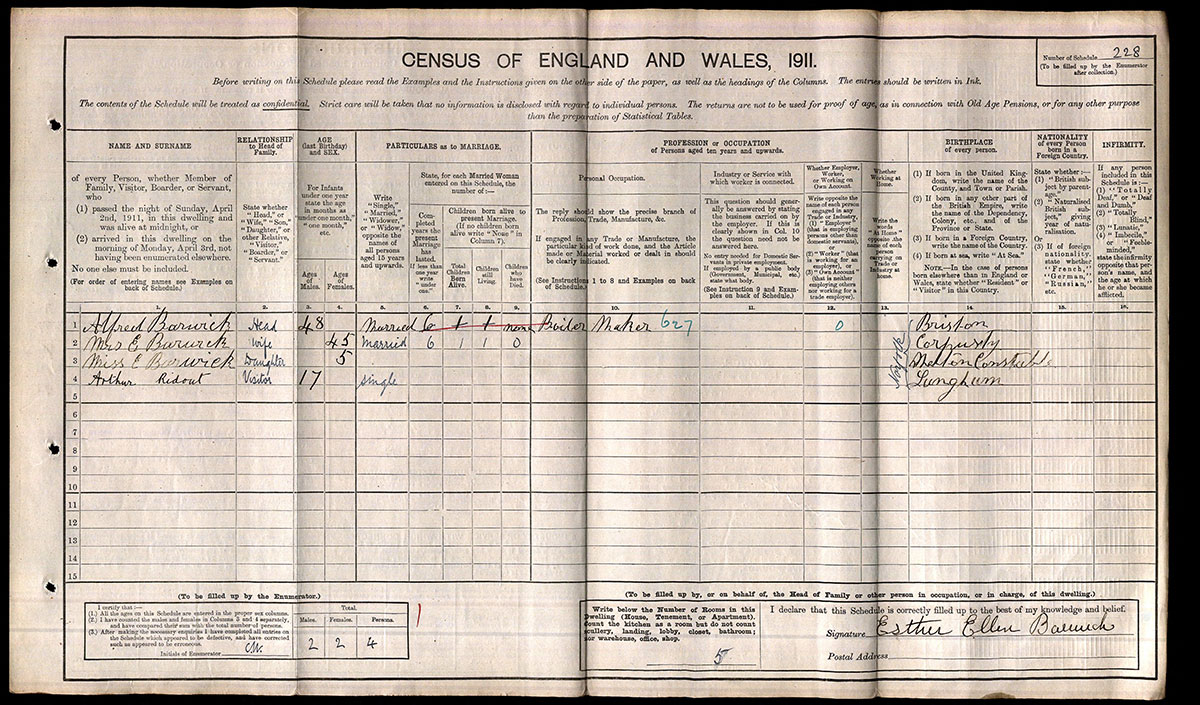 CENSUS OF ENGLAND AND WALES, 1911.
Number of Schedule 228
(To be filled up by the Enumerator
after collection.)
Before writing on this Schedule please read the Examples and the Instructions given on the other side of the paper, as well as the headings of the Columns. The entries should be written in Ink.
The contents of the Schedule will be treated as confidential. Strict care will be taken that no information is disclosed with regard to individual persons. The returns are not to be used for proof of age, as in connection with Old Age Pensions, or for any other purpose
than the preparation of Statistical Tables.
NAME AND SURNAME
of every Person, whether Member of
Family, Visitor, Boarder, or Servant,
who
(1) passed the night of Sunday, April
2nd, 1911, in this dwelling and
was alive at midnight, or
(2) arrived in this dwelling on the
morning of Monday, April 3rd, not
having been enumerated elsewhere.
No one else must be included.
(For order of entering names see Examples on
back of Schedule.)
RELATIONSHIP
to Head of
Family.
State whether
"Head," or
"Wife," "Son,"
"Daughter," or
other Relative,
"Visitor,"
"Boarder," or
"Servant."
AGE
(last Birthday)
and SEX.
For Infants
under one year
state the age
in months as
"under one month,"
"one month,"
etc.
Ages
of
Males.
Ages
of
Females.
PARTICULARS as to MARRIAGE.
Write
"Single,"
"Married,"
"Widower,"
or "Widow,"
opposite the
names of
all persons
aged 15 years
and upwards.
State, for each Married Woman
entered on this Schedule, the
number of :—
Completed
years the
present
Marriage
has
lasted.
If less than
one year
write
"under
one."
Children born alive to
present Marriage.
(If no children born
alive write "None" in
Column 7).
Total
Children
Born
Alive.
Children
still
Living.
Children
who
have
Died.
PROFESSION or OCCUPATION
of Persons aged ten years and upwards.
Personal Occupation.
The reply should show the precise branch of
Profession, Trade, Manufacture, &c.
If engaged in any Trade or Manufacture, the
particular kind of work done, and the Article
made or Material worked or dealt in should
be clearly indicated.
(See Instructions 1 to 8 and Examples on back
of Schedule.)
Industry or Service with
which worker is connected.
This question should gener-
ally be answered by stating
the business carried on by
the employer. If this is
clearly shown in Col. 10
the question need not be
answered here.
No entry needed for Domestic Ser-
vants in private employment.
If employed by a public body
(Government, Municipal, etc.)
state what body.
(See Instruction 9 and Exam-
ples on back of Schedule.)
Whether Employer,
Worker,
or Working on
Own Account.
Write opposite the
name of each person
engaged in any
Trade or Industry,
(1) "Employer"
(that is employing
persons other than
domestic servants),
or
(2) "Worker" (that
is working for an
employer), or
(3) "Own Account"
(that is neither
employing others
nor working for a
trade employer).
Whether
Working at
Home.
Write the
words
"At Home"
opposite the
name of each
person
carrying on
Trade or
Industry at
home.
BIRTHPLACE
of every person.
(1) If born in the United King-
dom, write the name of the
County, and Town or Parish.
(2) If born in any other part of
the British Empire, write
the name of the Dependency,
Colony, etc., and of the
Province or State.
(3) If born in a Foreign Country,
write the name of the Country.
(4) If born at sea, write "At Sea."
NOTE.—In the case of persons
born elsewhere than in England or
Wales, state whether "Resident" or
"Visitor" in this Country.
NATIONALITY
of every Person
born in a
Foreign Country.
State whether :—
(1) "British sub-
ject by parent-
age."
(2) "Naturalised
British sub-
ject," giving
year of natu-
ralisation.
Or
(3) If of foreign
nationality,
state whether
"French,"
"German,"
"Russian,"
etc.
INFIRMITY.
If any person
included in this
Schedule is :—
(1) "Totally
Deaf," or "Deaf
and Dumb,"
(2) "Totally
Blind,"
(3) "Lunatic,"
(4) "Imbecile,"
or "Feeble-
minded,"
state the infirmity
opposite that per-
son's name, and
the age at which
he or she became
afflicted.
1. 2. 3. 4. 5. 6. 7. 8. 9. 10. 11. 12. 13. 14. 15. 16.
1 Alfred Barwick Head 48 Married 6 1 1 none Boiler Maker 627 0 Briston
2 Mrs E Barwick Wife 45 Married 6 1 1 0 Corpusty
3 Miss E Barwick Daughter 5 Melton Constable
4 Arthur Ridout Visitor 17 single Langham
Norfolk
5
6
7
8
9
10
11
12
13
14
15
(To be filled up by the Enumerator.)
I certify that :—
(1.) All the ages on this Schedule are entered in the proper sex columns.
(2.) I have counted the males and females in Columns 3 and 4 separately,
and have compared their sum with the total number of persons.
(3.) After making the necessary enquiries I have completed all entries on
the Schedule which appeared to be defective, and have corrected
such as appeared to be erroneous.
Initials of Enumerator
Total.
Males. Females. Persons.
2 2 4
(To be filled up by, or on behalf of, the Head of Family or other person in occupation, or in charge, of this dwelling.)
Write below the Number of Rooms in this
Dwelling (House, Tenement, or Apartment).
Count the kitchen as a room but do not count
scullery, landing, lobby, closet, bathroom;
nor warehouse, office, shop.
5
I declare that this Schedule is correctly filled up to the best of my knowledge and belief.
Signature Esther Ellen Barwick
Postal Address